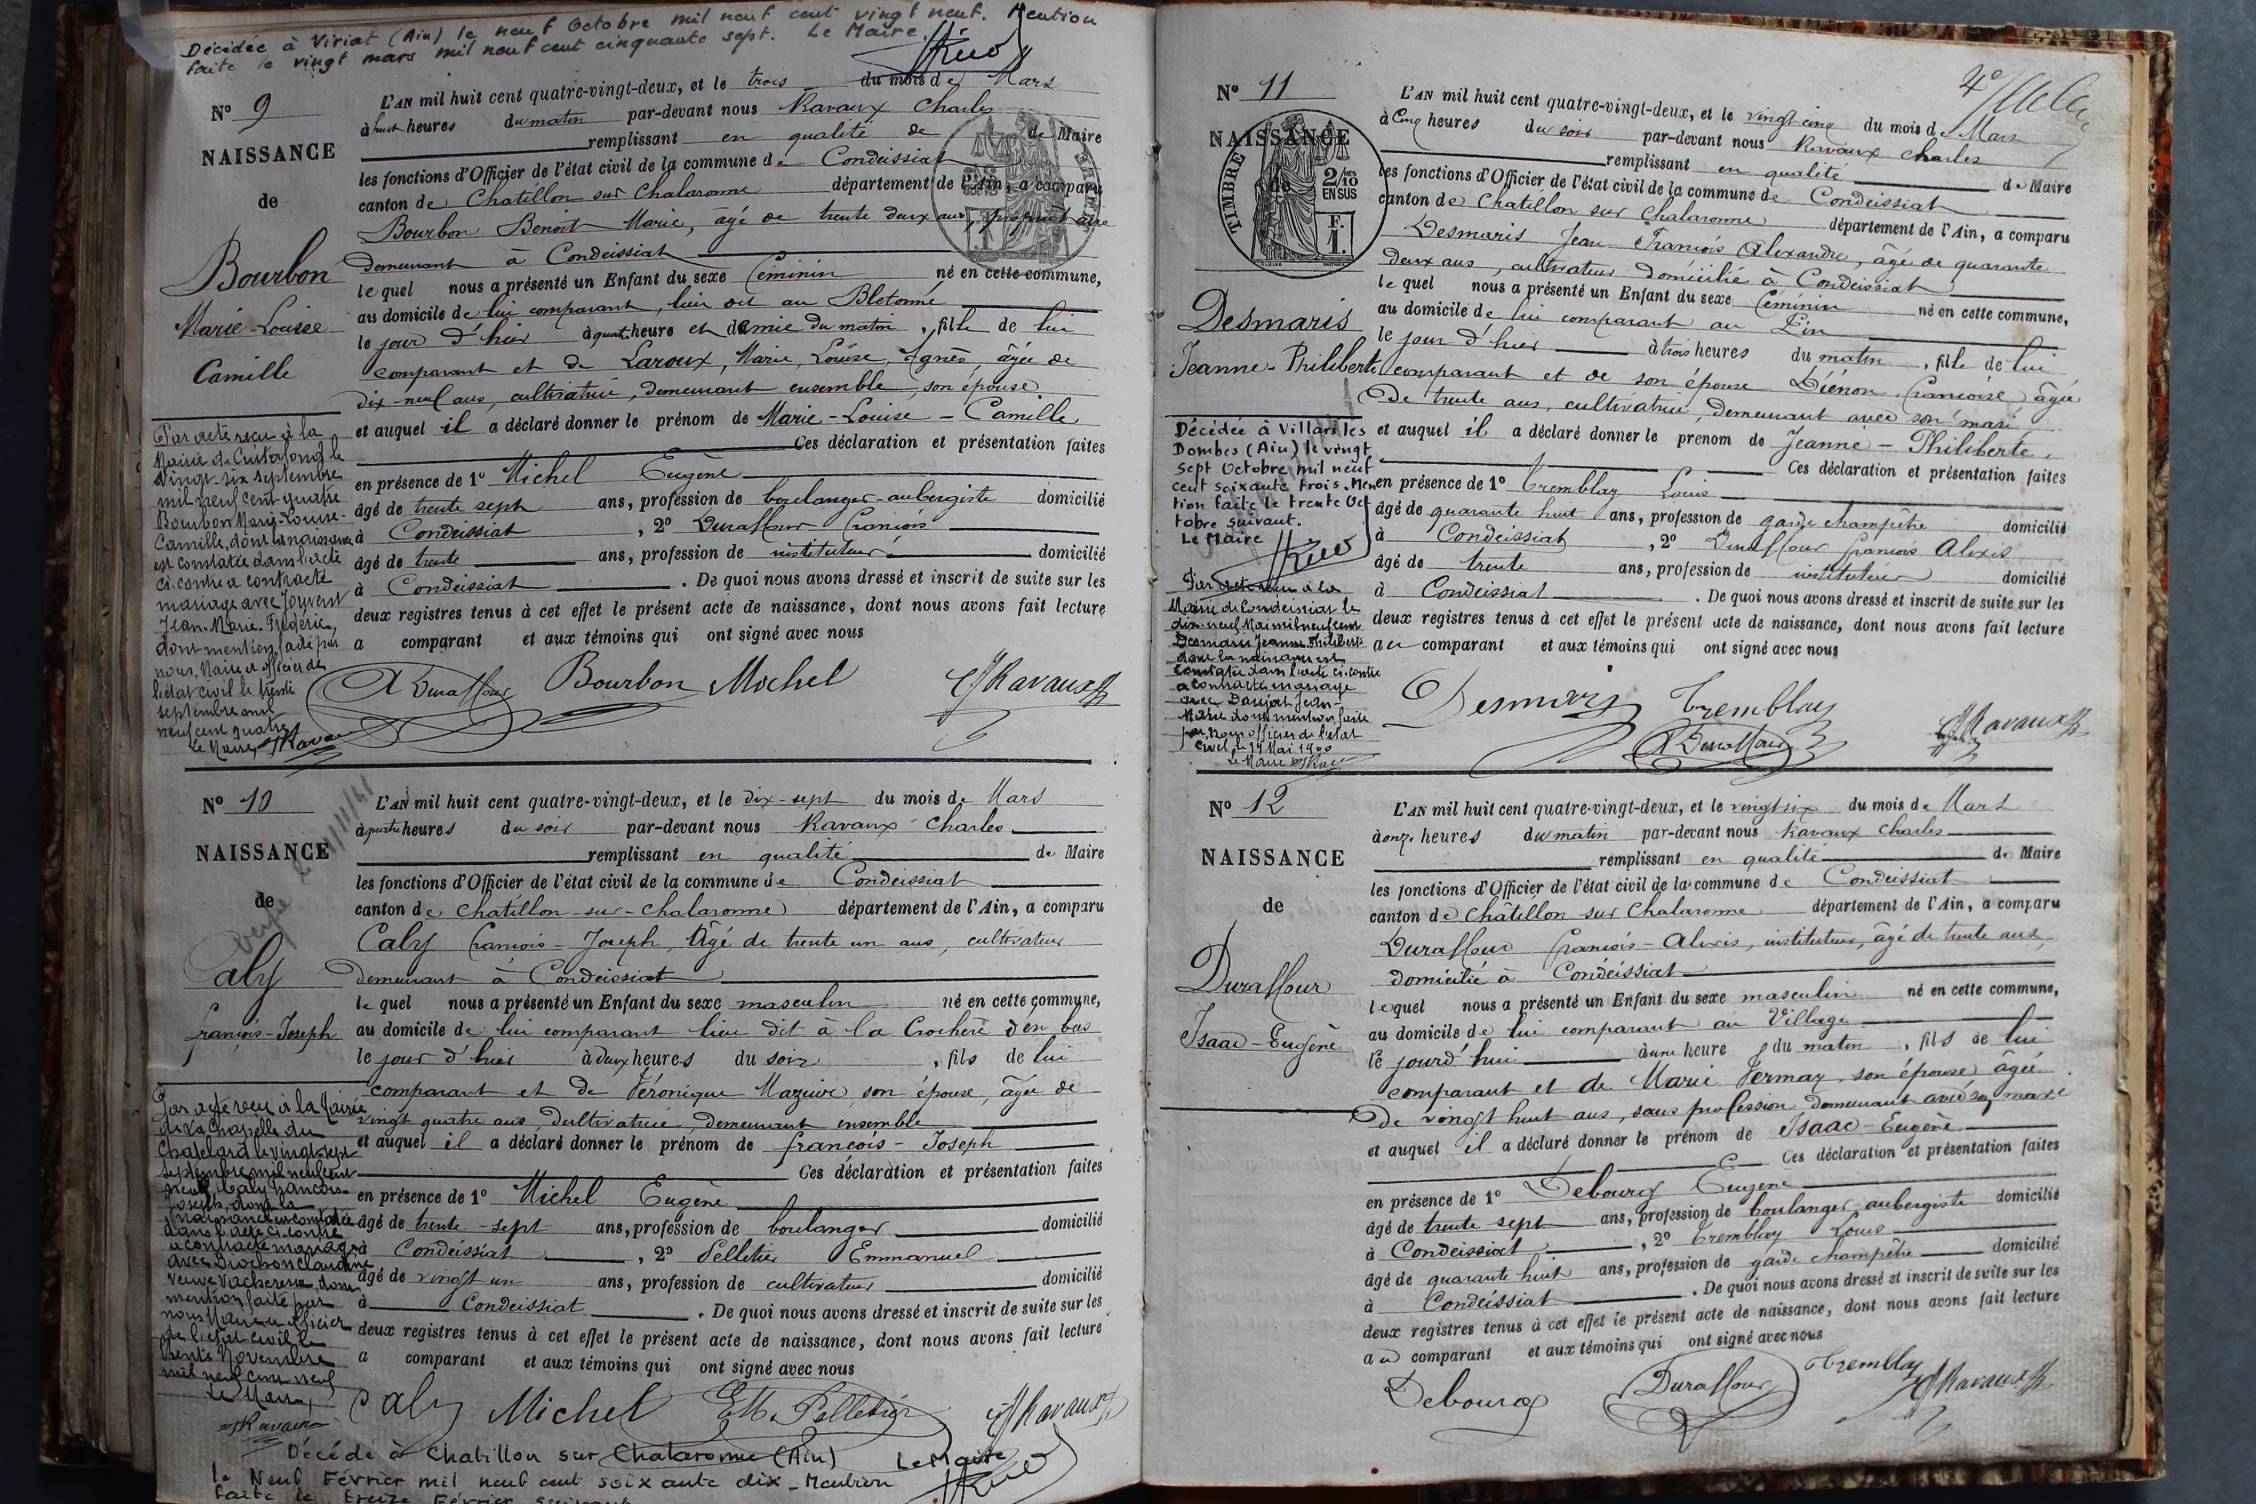 Décédée à Viriat (Ain) le neuf Octobre mil neuf cent vingt neuf. Mention
faite le vingt mars mil neuf cent cinquante sept. Le Maire.
N° 9
NAISSANCE
de
Bourbon
Marie-Louise
Camille
L'AN mil huit cent quatre-vingt-deux, et le trois du mois de Mars
à huit heures du matin par-devant nous Ravaux Charles
remplissant en qualité de de Maire
les fonctions d'Officier de l'état civil de la commune de Condeissiat
canton de Chatillon sur Chalaronne département de l'Ain, a comparu
Bourbon Benoit Marie, âgé de trente deux ans, propriétaire
demeurant à Condeissiat
lequel nous a présenté un Enfant du sexe féminin né en cette commune,
au domicile de lui comparant, lieu dit au Bletonné
le jour d'hier à quatre heure et demie du matin, fille de lui
comparant et de Laroux, Marie, Louise, Agnès âgée de
dix-neuf ans, cultivatrice, demeurant ensemble, son épouse
et auquel il a déclaré donner le prénom de Marie-Louise-Camille
Ces déclaration et présentation faites
en présence de 1° Michel Eugène
âgé de trente sept ans, profession de boulanger-aubergiste domicilié
à Condeissiat, 2° Duraffour François
âgé de trente ans, profession de instituteur domicilié
à Condeissiat. De quoi nous avons dressé et inscrit de suite sur les
deux registres tenus à cet effet le présent acte de naissance, dont nous avons fait lecture
a comparant et aux témoins qui ont signé avec nous
Par acte reçu à la
Mairie de
vingt-six septembre
mil neuf cent quatre
Bourbon Marie-Louise-
Camille, dont la naissance
est constatée dans l'acte
ci-contre a contracté
mariage avec Jouvent
Jean-Marie-Frédéric,
dont mention faite par
nous, Maire et officier de
l'état civil le trente
septembre mil
neuf cent quatre
Le Maire, Ravaux
A Duraffour Bourbon Michel Ravaux
N° 10
NAISSANCE
de
Caly
François-Joseph
L'AN mil huit cent quatre-vingt-deux, et le dix-sept du mois de Mars
à quatre heures du soir par-devant nous Ravaux Charles
remplissant en qualité de Maire
les fonctions d'Officier de l'état civil de la commune de Condeissiat
canton de Chatillon-sur-Chalaronne département de l'Ain, a comparu
Caly François-Joseph, âgé de trente un ans, cultivateur
demeurant à Condeissiat
lequel nous a présenté un Enfant du sexe masculin né en cette commune,
au domicile de lui comparant lieu dit à la Crochère d'en bas
le jour d'hier à deux heures du soir, fils de lui
comparant et de Véronique Mazuire, son épouse, âgée de
vingt quatre ans, cultivatrice, demeurant ensemble
et auquel il a déclaré donner le prénom de François-Joseph
Ces déclaration et présentation faites
en présence de 1° Michel Eugène
âgé de trente-sept ans, profession de boulanger domicilié
à Condeissiat, 2° Pelletier Emmanuel
âgé de vingt un ans, profession de cultivateur domicilié
à Condeissiat. De quoi nous avons dressé et inscrit de suite sur les
deux registres tenus à cet effet le présent acte de naissance, dont nous avons fait lecture
a comparant et aux témoins qui ont signé avec nous
Par acte reçu à la Mairie
de La Chapelle du
Chatelard le vingt-sept
septembre mil neuf cent
neuf, Caly François-
Joseph, dont la
naissance est constatée
dans l'acte ci-contre
a contracté mariage
avec Brochon Claudine
veuve Vacheresse, dont
mention faite par
nous Maire et officier
de l'état civil le
trente Novembre
mil neuf cent neuf
Le Maire,
Ravaux
Caly Michel EM. Pelletier Ravaux
Décédé à Chatillon sur Chalaronne (Ain) Le Maire
le Neuf Février mil neuf cent soixante dix. Mention
faite le treize Février suivant.
N° 11
NAISSANCE
de
TIMBRE
2/10 EN SUS
F. 1.
Desmaris
Jeanne-Philiberte
L'AN mil huit cent quatre-vingt-deux, et le vingt cinq du mois de Mars
à cinq heures du soir par-devant nous Ravaux Charles
remplissant en qualité de Maire
les fonctions d'Officier de l'état civil de la commune de Condeissiat
canton de Chatillon sur Chalaronne département de l'Ain, a comparu
Desmaris Jean François Alexandre, âgé de quarante
deux ans, cultivateur domicilié à Condeissiat
lequel nous a présenté un Enfant du sexe féminin né en cette commune,
au domicile de lui comparant au Pin
le jour d'hier à trois heures du matin, fille de lui
comparant et de son épouse Diénon, Françoise âgée
de trente ans, cultivatrice, demeurant avec son mari
et auquel il a déclaré donner le prénom de Jeanne-Philiberte.
Ces déclaration et présentation faites
en présence de 1° Tremblay Louis
âgé de quarante huit ans, profession de garde champêtre domicilié
à Condeissiat, 2° Duraffour François Alexis
âgé de trente ans, profession de instituteur domicilié
à Condeissiat. De quoi nous avons dressé et inscrit de suite sur les
deux registres tenus à cet effet le présent acte de naissance, dont nous avons fait lecture
au comparant et aux témoins qui ont signé avec nous
Décédée à Villars les
Dombes (Ain) le vingt
sept Octobre mil neuf
cent soixante trois. Men
tion faite le trente Oct
tobre suivant.
Le Maire
Par acte reçu à la
Mairie de Condeissiat le
dix-neuf Mai mil neuf cent
Desmaris Jeanne Philiberte
dont la naissance est
constatée dans l'acte ci-contre
a contracté mariage
avec Jean-
Marie dont mention faite
par nous officier de l'état
civil le 19 Mai 1900
Le Maire Ravaux
Desmaris Tremblay
A Duraffour Ravaux
N° 12
NAISSANCE
de
Duraffour
Isaac-Eugène
L'AN mil huit cent quatre-vingt-deux, et le vingt six du mois de Mars
à onze heures du matin par-devant nous Ravaux Charles
remplissant en qualité de Maire
les fonctions d'Officier de l'état civil de la commune de Condeissiat
canton de Châtillon sur Chalaronne département de l'Ain, a comparu
Duraffour François-Alexis, instituteur, âgé de trente ans,
domicilié à Condeissiat
lequel nous a présenté un Enfant du sexe masculin né en cette commune,
au domicile de lui comparant au Village
le jourd'hui à une heure du matin, fils de lui
comparant et de Marie Vermay, son épouse, âgée
de vingt huit ans, sans profession, demeurant avec son mari
et auquel il a déclaré donner le prénom de Isaac-Eugène
Ces déclaration et présentation faites
en présence de 1° Debourg Eugène
âgé de trente sept ans, profession de boulanger aubergiste domicilié
à Condeissiat, 2° Tremblay Louis
âgé de quarante huit ans, profession de garde champêtre domicilié
à Condeissiat. De quoi nous avons dressé et inscrit de suite sur les
deux registres tenus à cet effet le présent acte de naissance, dont nous avons fait lecture
au comparant et aux témoins qui ont signé avec nous
Debourg Duraffour Tremblay Ravaux